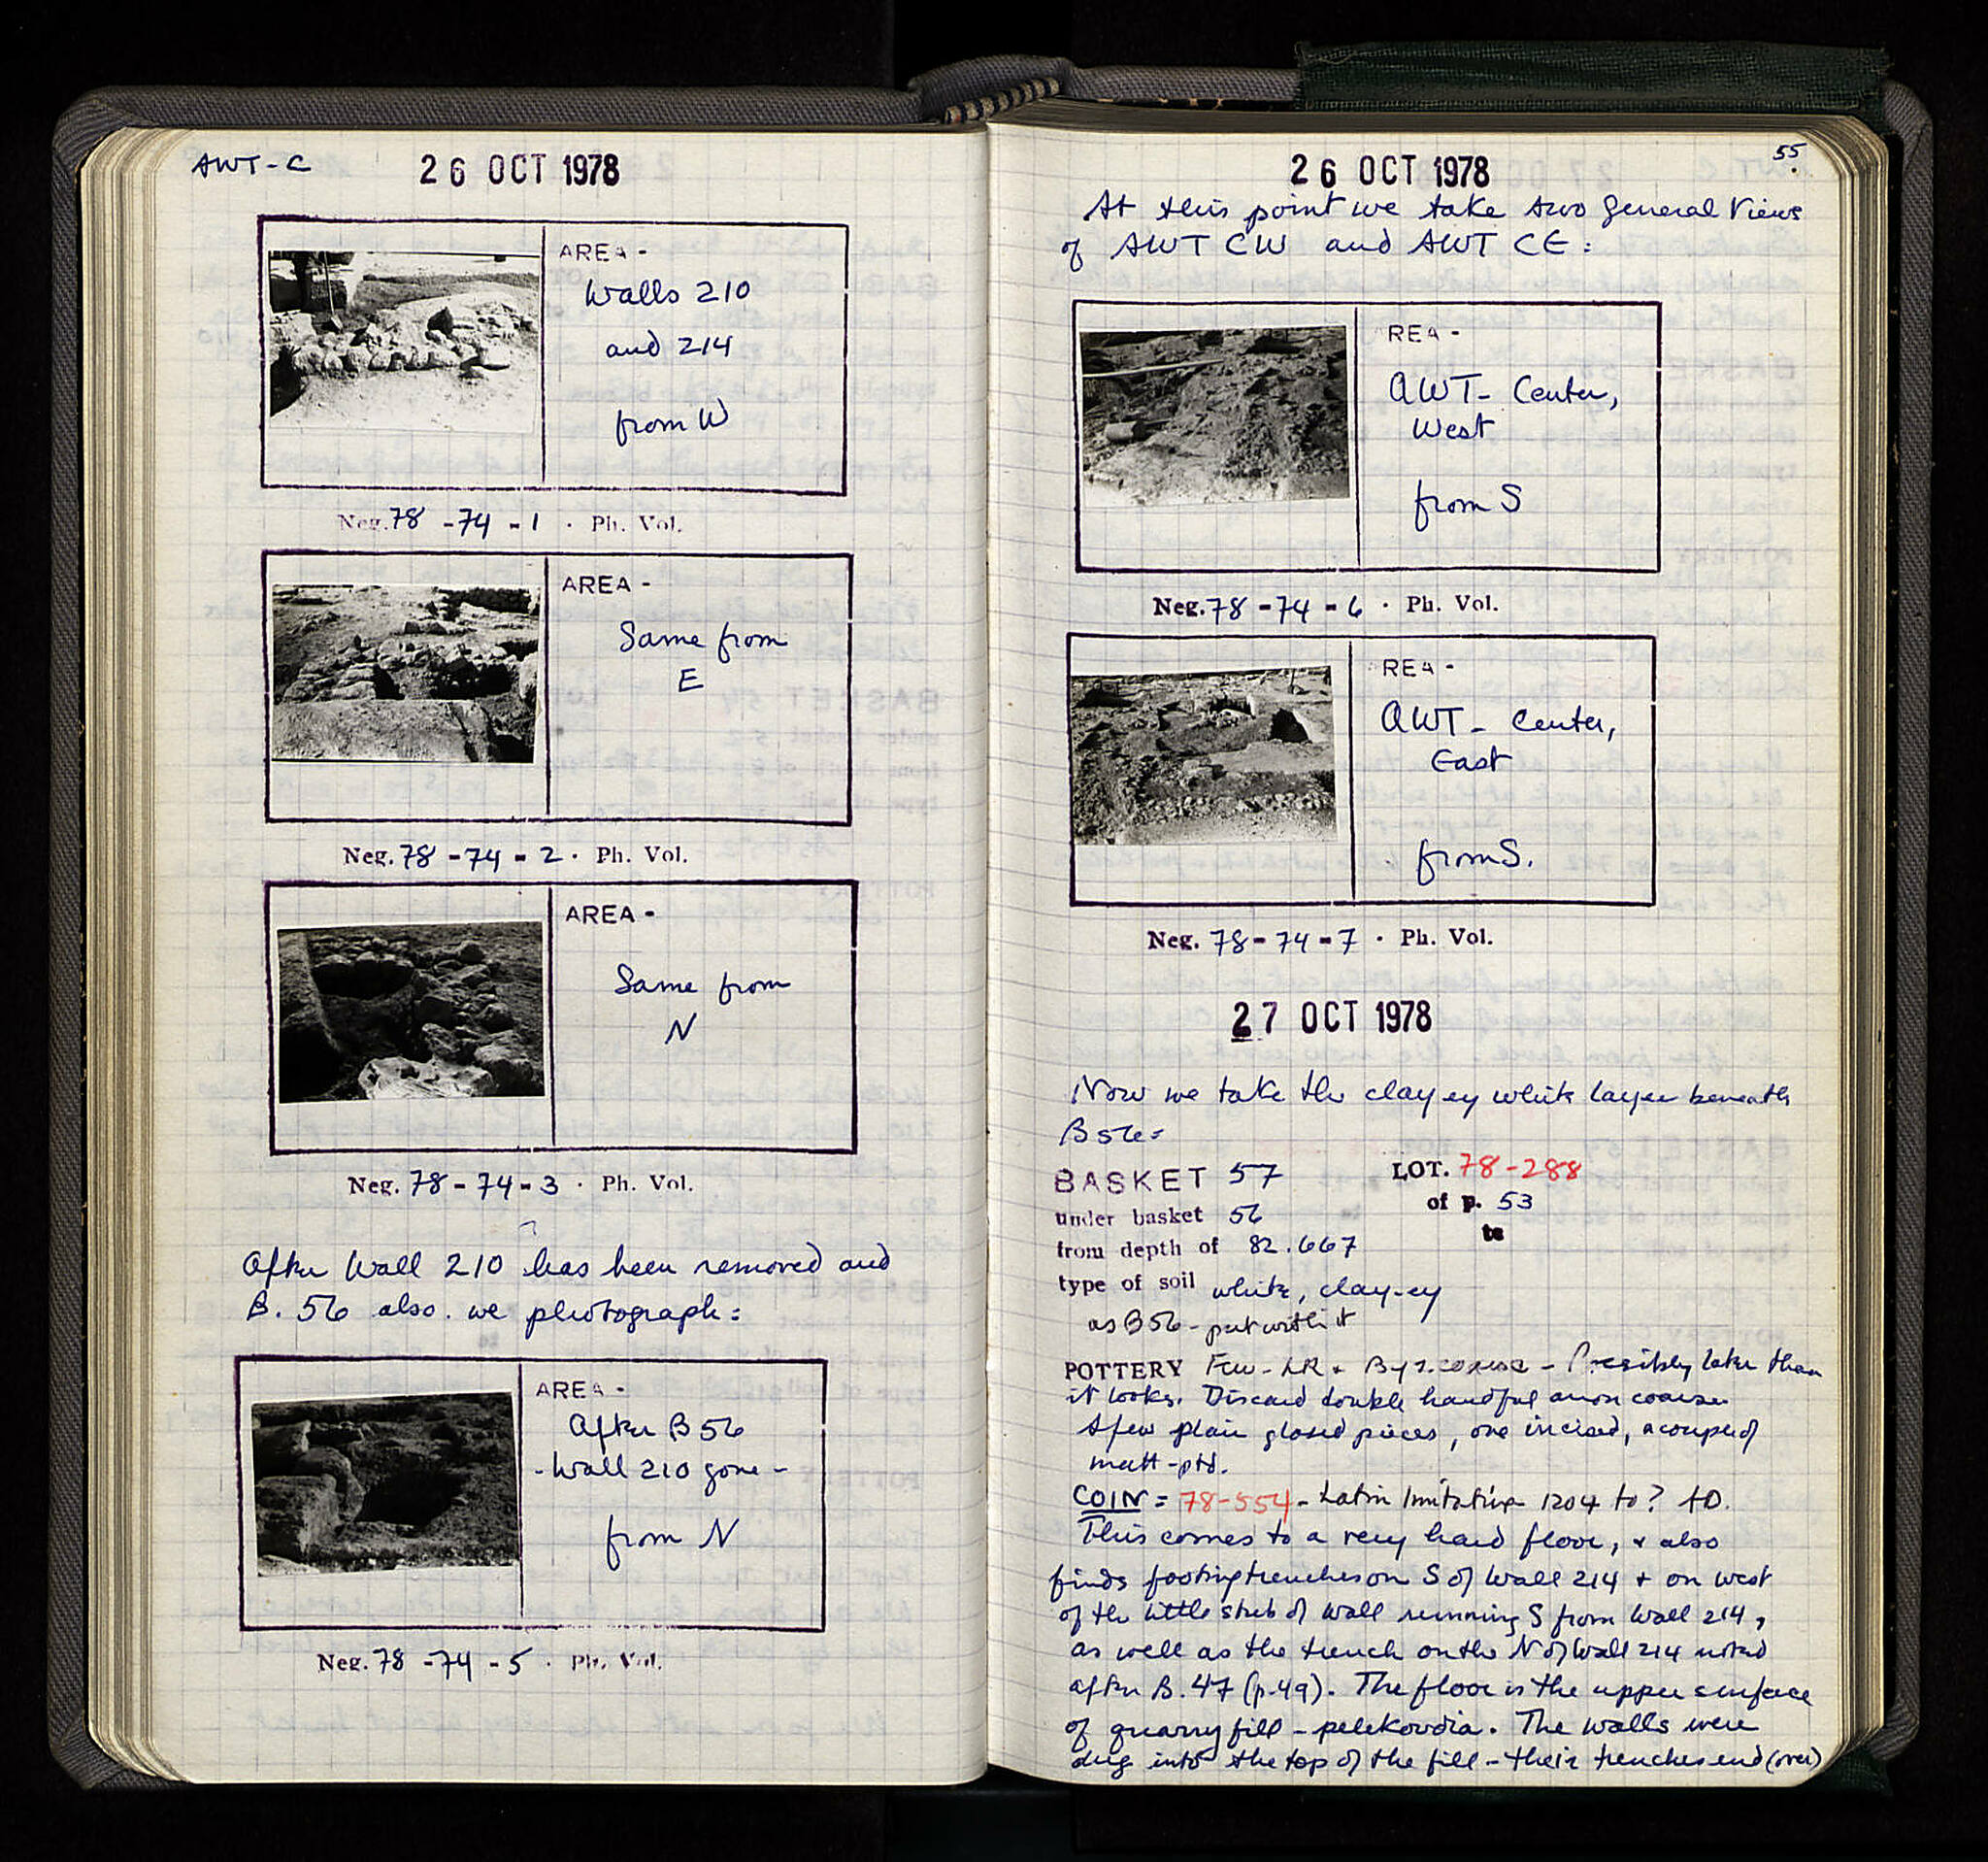 AWT-C
26 OCT 1978
AREA -
Walls 210
and 214
from W
Neg. 78-74-1 · Ph. Vol.
AREA -
Same from
E
Neg. 78-74-2 · Ph. Vol.
AREA -
Same from
N
Neg. 78-74-3 · Ph. Vol.
After Wall 210 has been removed and
B. 56 also. we photograph:
AREA -
After B56
- Wall 210 gone -
from N
Neg. 78-74-5 · Ph. Vol.
55
26 OCT 1978
At this point we take two general views
of AWT CW and AWT CE:
REA -
AWT- Center,
West
from S
Neg. 78-74-6 · Ph. Vol.
REA -
AWT- Center,
East
from S.
Neg. 78-74-7 · Ph. Vol.
27 OCT 1978
Now we take the clayey white layer beneath
B56:
BASKET 57 LOT. 78-288
under basket 56 of p. 53
from depth of 82.667 to
type of soil white, clay-ey
as B56 - put with it
POTTERY Few - LR + Byz. coarse - Possibly later than
it looks. Discard double handful anon coarse.
A few plain glazed pieces, one incised, a couple of
matt-ptd.
COIN = 78-554 - Latin Imitative 1204 to? AD.
This comes to a very hard floor, + also
finds footing trenches on S of Wall 214 + on west
of the little stub of wall running S from Wall 214,
as well as the trench on the N of Wall 214 noted
after B. 47 (p. 49). The floor is the upper surface
of quarry fill - pelekoudia. The walls were
dug into the top of the fill - their trenches end (over)